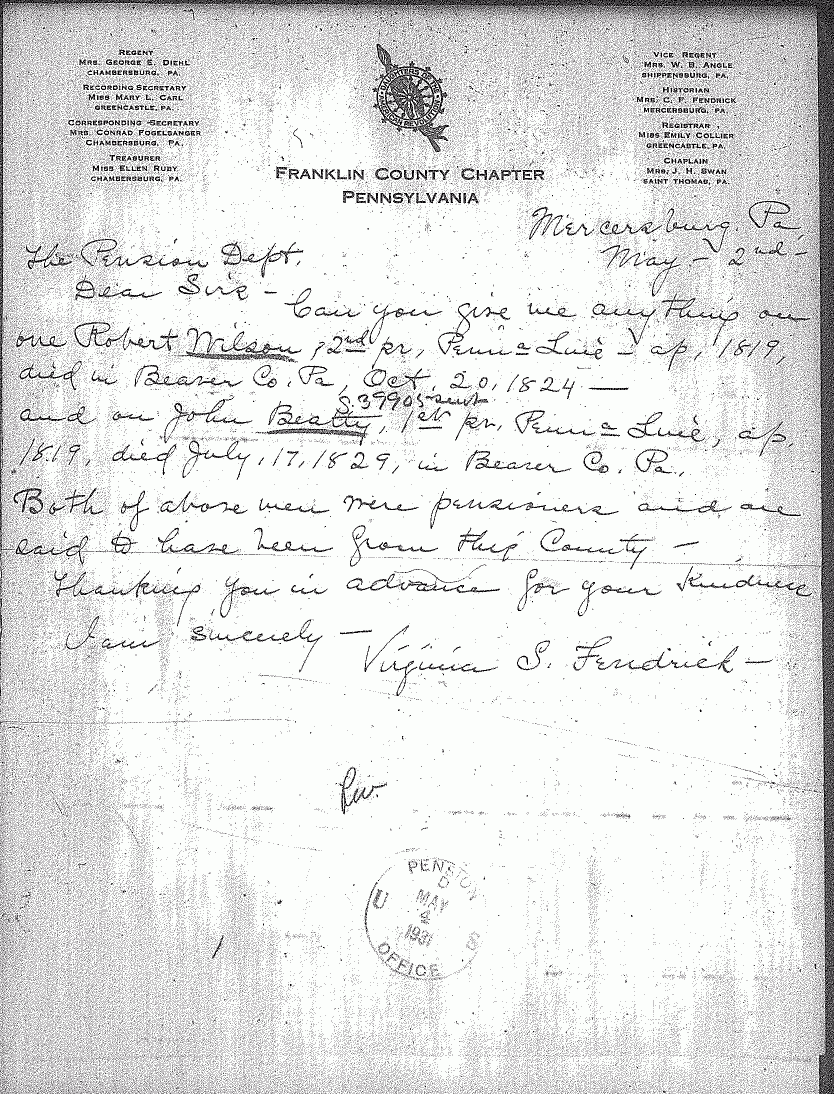 REGENT
MRS. GEORGE E. DIEHL
CHAMBERSBURG, PA.
RECORDING SECRETARY
MISS MARY L. CARL
GREENCASTLE, PA.
CORRESPONDING SECRETARY
MRS. CONRAD FOGELSANGER
CHAMBERSBURG, PA.
TREASURER
MISS ELLEN RUBY
CHAMBERSBURG, PA.
VICE REGENT
MRS. W. B. ANGLE
SHIPPENSBURG, PA.
HISTORIAN
MRS. C. F. FENDRICK
MERCERSBURG, PA.
REGISTRAR
MISS EMILY COLLIER
GREENCASTLE, PA.
CHAPLAIN
MRS. J. H. SWAN
SAINT THOMAS, PA.
FRANKLIN COUNTY CHAPTER
PENNSYLVANIA
Mercersburg, Pa
May - 2nd -
The Pension Dept.
Dear Sirs -
Can you give me anything on
one Robert Wilson, 2nd pr, Penna Line - ap, 1819,
died in Beaver Co. Pa, Oct, 20, 1824 —
S.39905
and on John Beatty, 1st pr. Penna Line, ap.
1819, died July, 17, 1829, in Beaver Co. Pa.
Both of above men were pensioners and are
said to have been from this County -
Thanking you in advance for your kindness
I am sincerely -
Virginia S. Fendrick -
PENSION
MAY
4
1931
U S
OFFICE